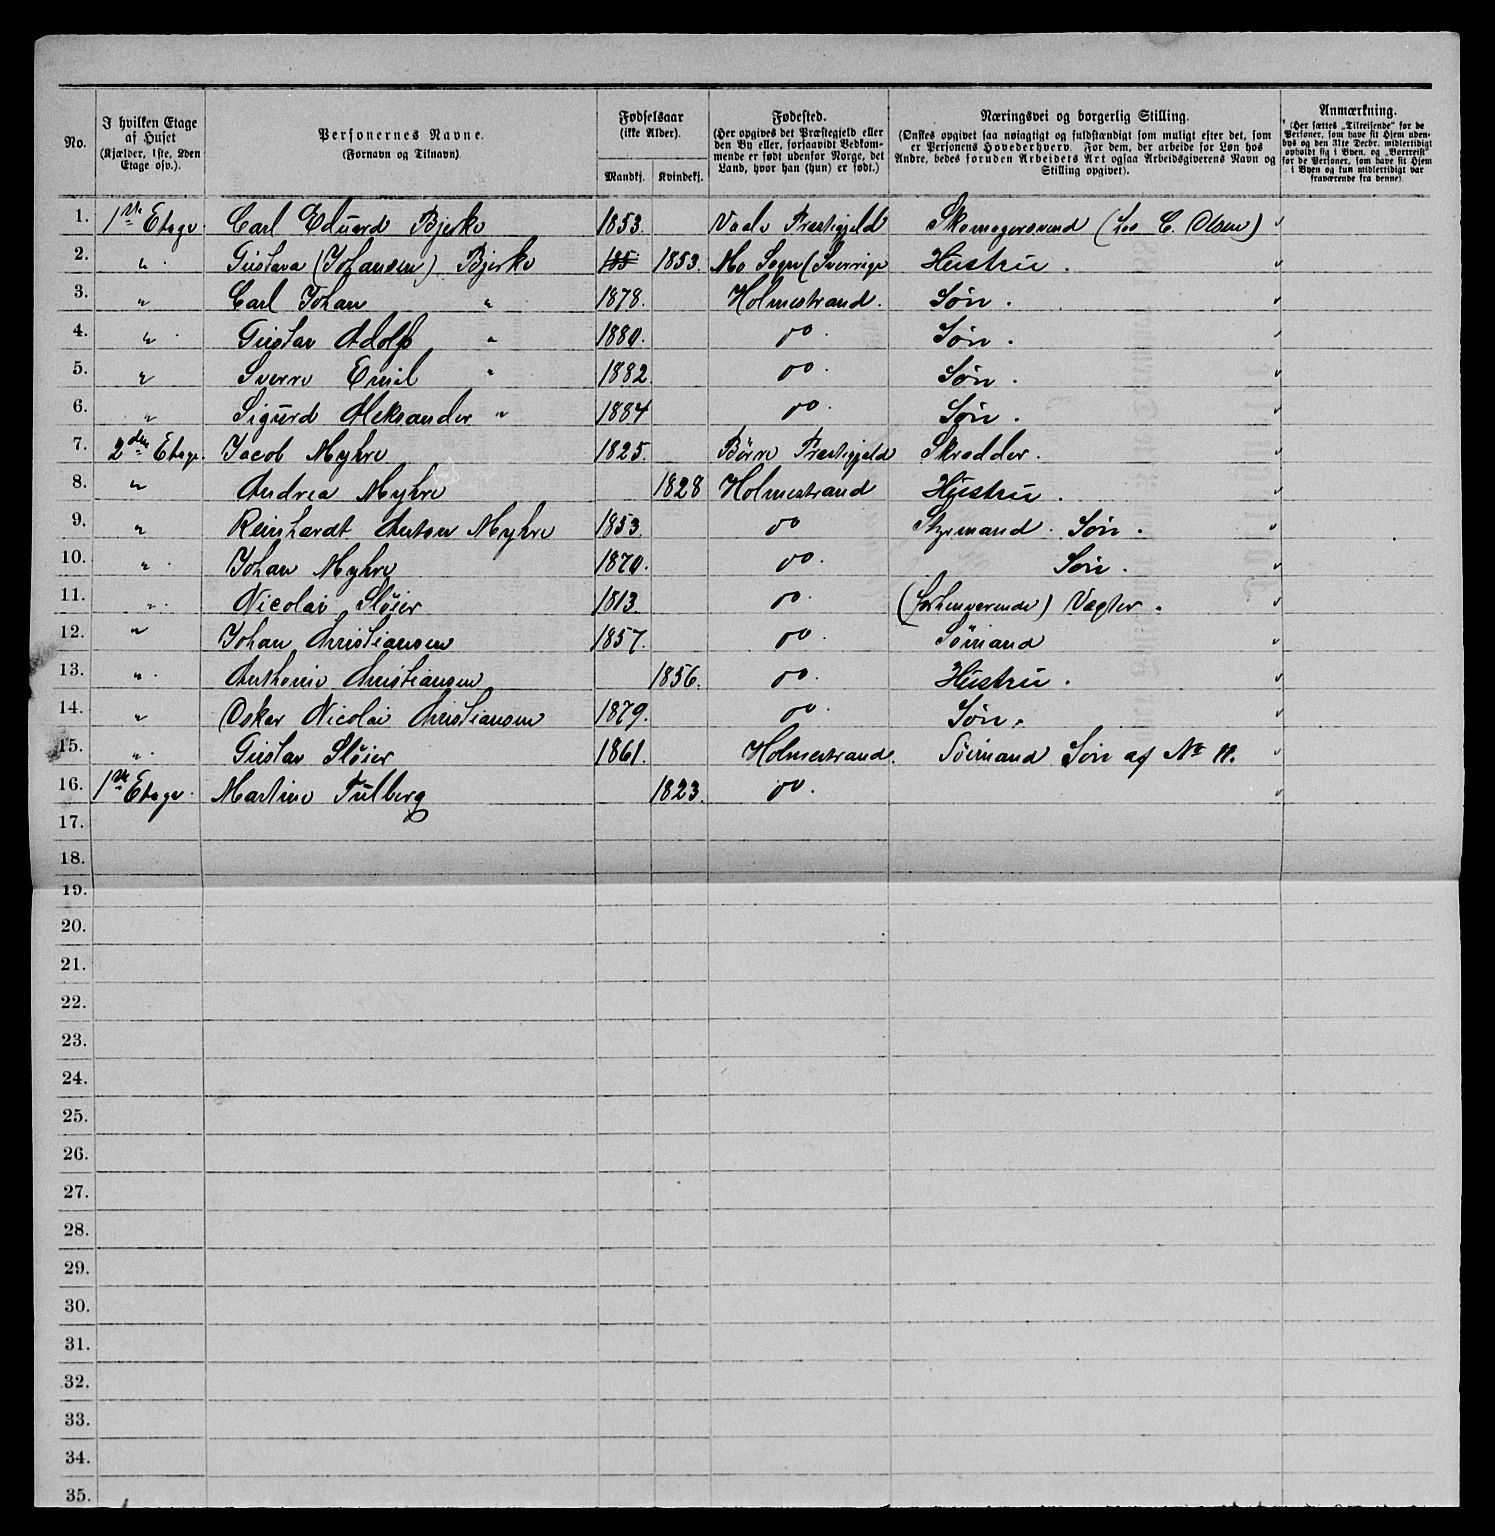 No. I hvilken Etage af Huset (Kjælder, 1ste, 2den Etage osv.). Personernes Navne. (Fornavn og Tilnavn) Fødselsaar (ikke Alder). Mandkj. Kvindekj. Fødested. (Her opgives det Præstegjeld eller den By eller, forsaavidt Vedkommende er født udenfor Norge, det Land, hvor han (hun) er født.) Næringsvei og borgerlig Stilling. (Ønskes opgivet saa nøiagtigt og fuldstændigt som muligt efter det, som er Personens Hovederhverv. For dem, der arbeide for Løn hos Andre, bedes foruden Arbeidets Art ogsaa Arbeidsgiverens Navn og Stilling opgivet). Anmærkning. (Her sættes „Tilreisende" for de Personer, som have sit Hjem udenbys og den 31te Decbr. midlertidigt opholdt sig i Byen, og „Bortreist" for de Personer, som have sit Hjem i Byen og kun midlertidigt var fraværende fra denne)
1. 1ste Etage Carl Eduard Bjerke 1853. Vaale Præstigjeld Skomagersvend (hos C. Olsen)
2. " Gustava (Johansen) Bjerke 185 1853. Mo Sogn (Sverrige Hustru.
3. " Carl Johan " 1878. Holmestrand. Søn.
4. " Gustav Adolf " 1880. do Søn.
5. " Sverre Emil " 1882. do. Søn.
6. " Sigurd Aleksander " 1884 do. Søn.
7. 2den Etage. Jacob Myhre 1825. Børre Præstigjeld Skrædder.
8. " Andrea Myhre 1828 Holmestrand Hustru.
9. " Reinhardt Anton Myhre 1853. do Styrmand. Søn.
10. " Johan Myhre 1870. do. Søn.
11. " Nicolai Sløier 1813. do. (forhenværende) Vægter.
12. " Johan Christiansen 1857. do. Sømand
13. " Anthonie Christiansen 1856. do. Hustru.
14. " Oskar Nicolai Christiansen 1879. do. Søn.
15. " Gustav Sløier 1861. Holmestrand. Sømand Søn af No 11.
16. 1ste Etage. Martine Fulberg 1823. do.
17.
18.
19.
20.
21.
22.
23.
24.
25.
26.
27.
28.
29.
30.
31.
32.
33.
34.
35.